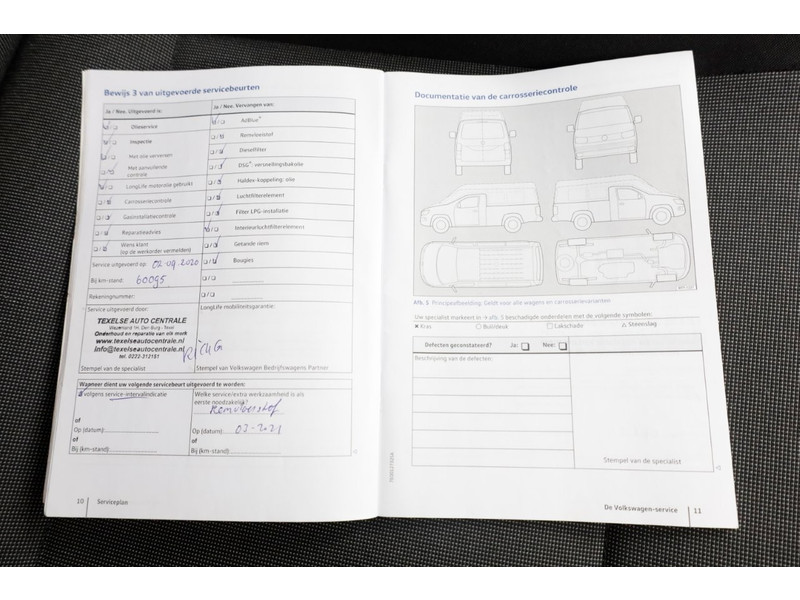 Bewijs 3 van uitgevoerde servicebeurten
Ja / Nee. Uitgevoerd is:
Ja / Nee. Vervangen van:
Olieservice
AdBlue®
Inspectie
Remvloeistof
Met olie verversen
Dieselfilter
Met aanvullende controle
DSG®: versnellingsbakolie
LongLife motorolie gebruikt
Haldex-koppeling: olie
Carrosseriecontrole
Luchtfilterelement
Gasinstallatiecontrole
Filter LPG-installatie
Reparatieadvies
Interieurluchtfilterelement
Wens klant
(op de werkorder vermelden)
Getande riem
Service uitgevoerd op: 02-09-2020
Bougies
Bij km-stand: 60095
Rekeningnummer:
Service uitgevoerd door:
LongLife mobiliteitsgarantie:
TEXELSE AUTO CENTRALE
Onderhoud en reparatie van elk merk
www.texelseautocentrale.nl
info@texelseautocentrale.nl
tel. 0222-312151
Stempel van de specialist
Stempel van Volkswagen Bedrijfswagens Partner
Wanneer dient uw volgende servicebeurt uitgevoerd te worden:
volgens service-intervalindicatie
Welke service/extra werkzaamheid is als
eerste noodzakelijk?
Remvloeistof
of
Op (datum):
Op (datum): 03-2021
of
of
Bij (km-stand):
Bij (km-stand):
10 Serviceplan
Documentatie van de carrosseriecontrole
Afb. 5 Principeafbeelding: Geldt voor alle wagens en carrosserievarianten
Uw specialist markeert in → afb. 5 beschadigde onderdelen met de volgende symbolen:
× Kras
○ Buil/deuk
□ Lakschade
△ Steenslag
Defecten geconstateerd? Ja: Nee:
Beschrijving van de defecten:
Stempel van de specialist
De Volkswagen-service 11